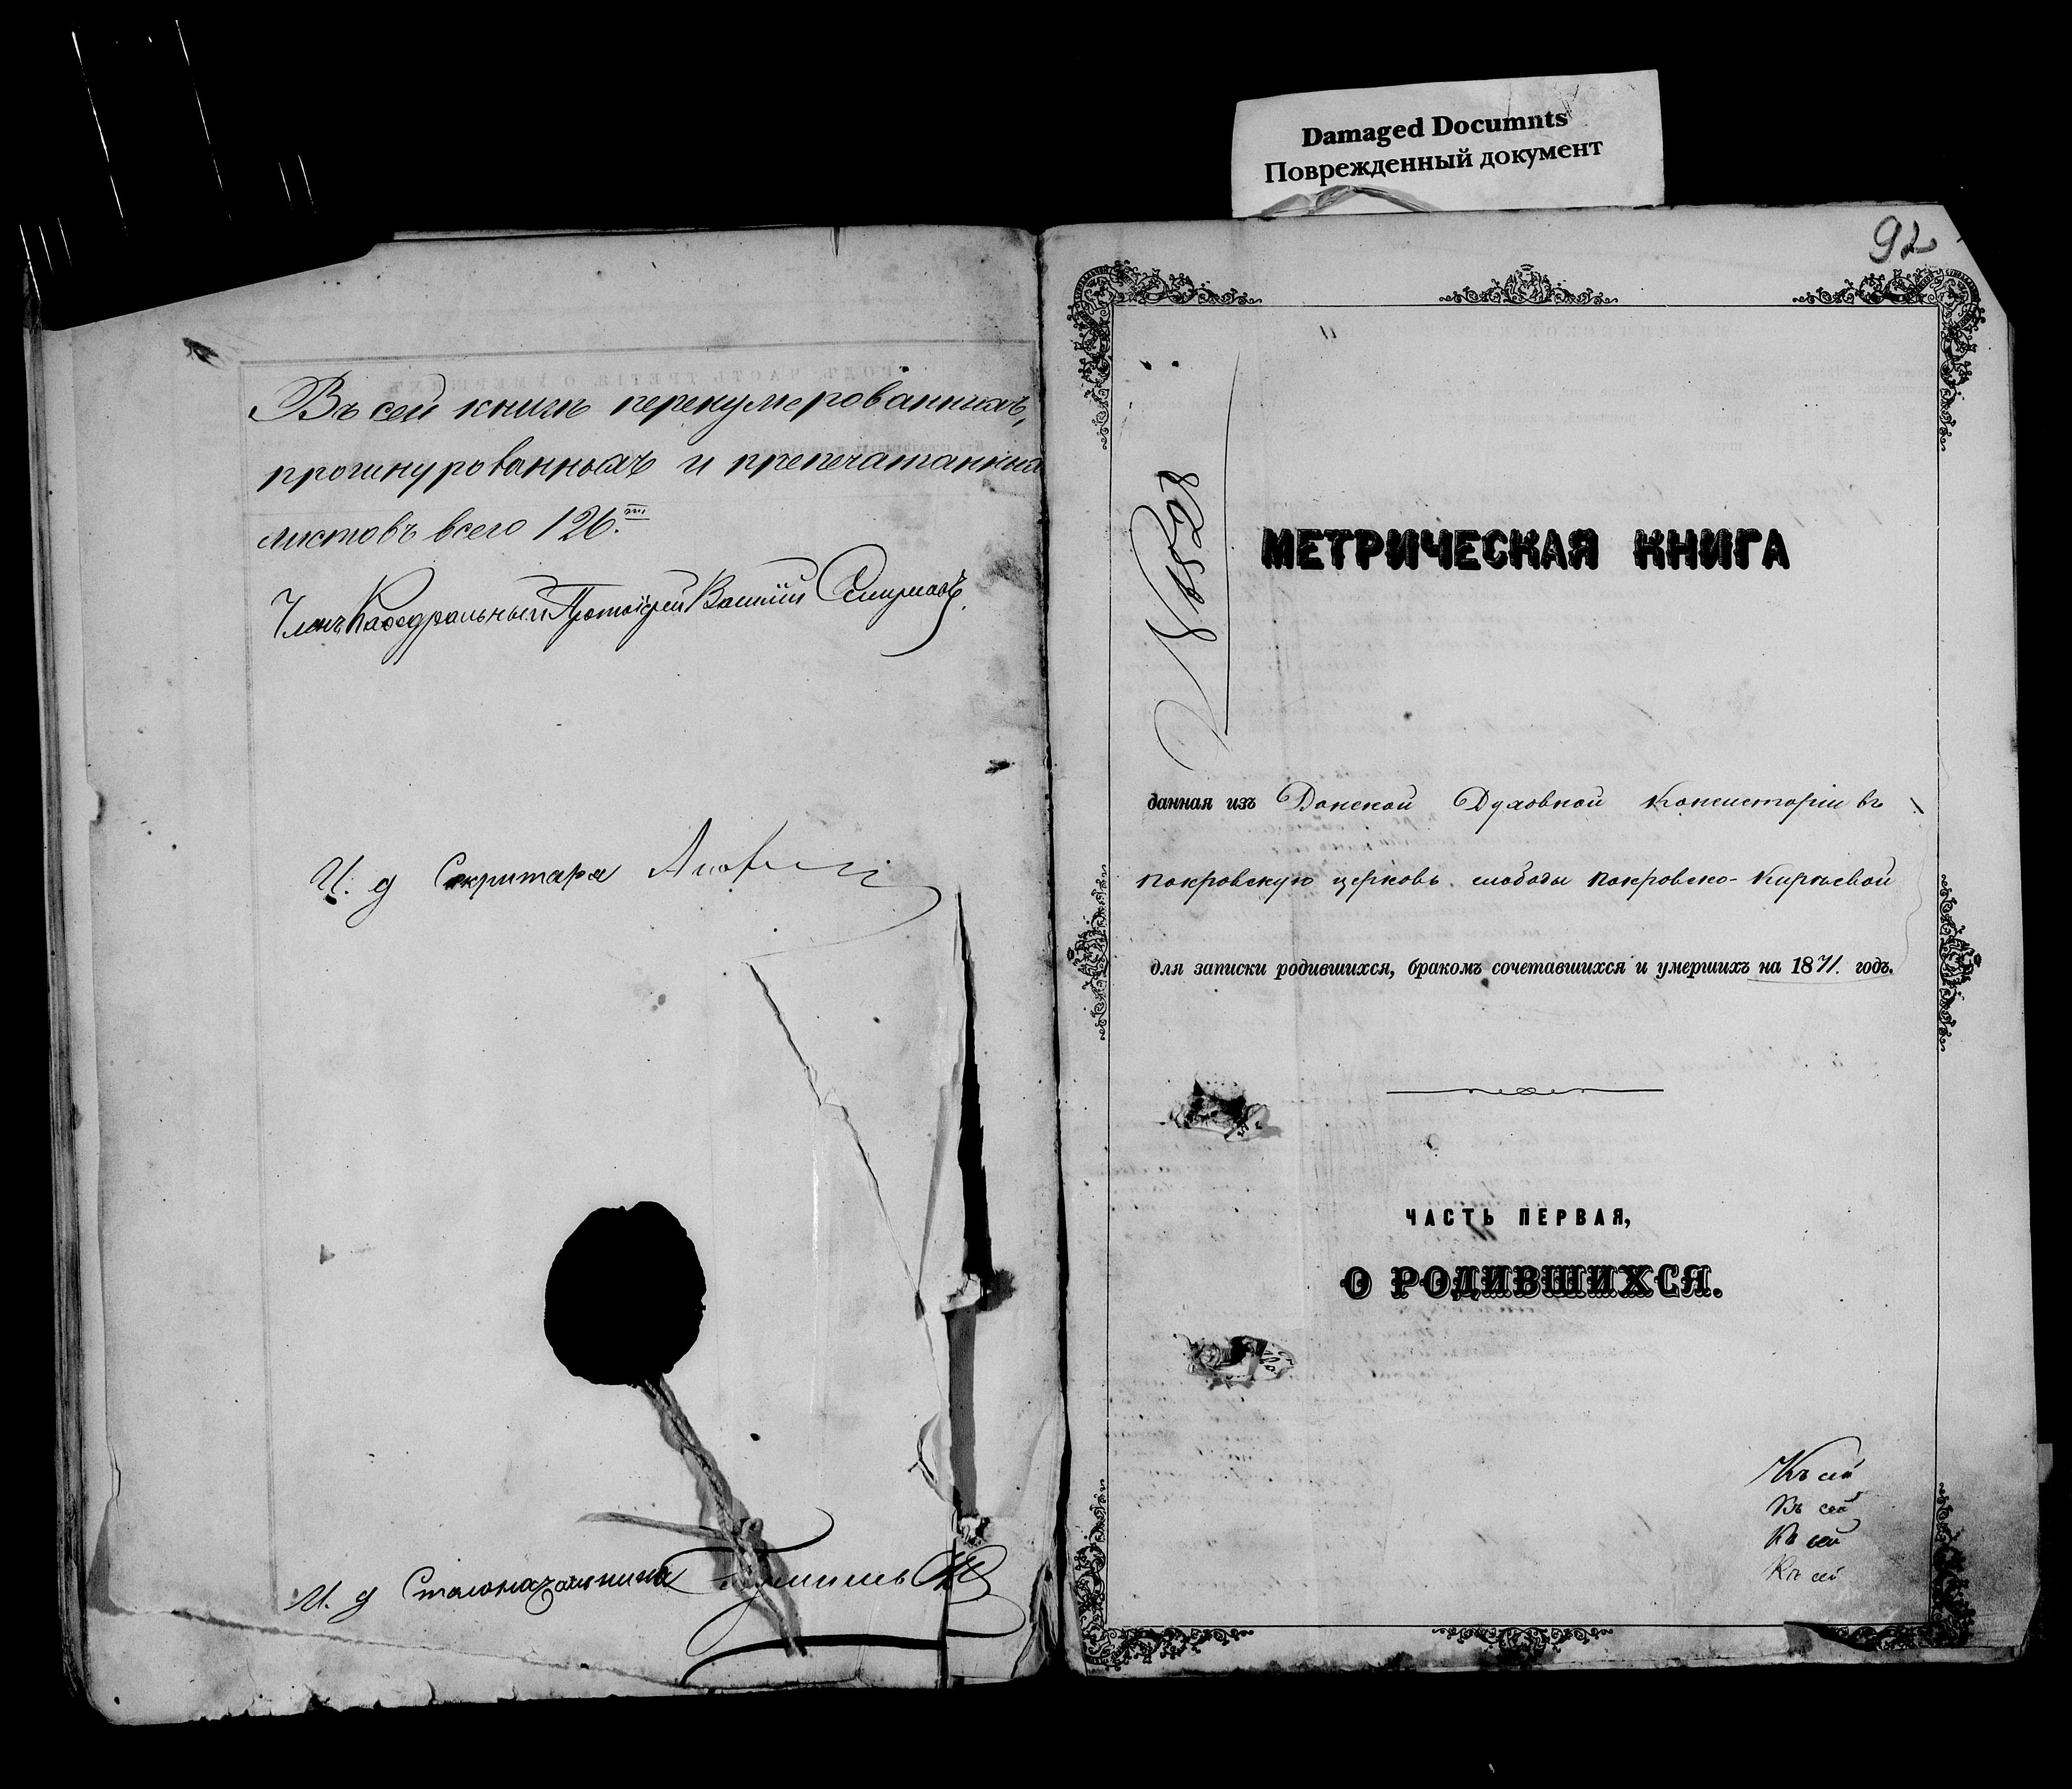 Damaged Documnts
Поврежденный документ
Въ сей книгѣ перенумерованныхъ,
прошнурованныхъ и препечатанны
листовъ всего 126.
Членъ Каѳедральный Протоіерей Василій
И. д Секритаря
И. д Столоначальника
92
№ 18528
МЕТРИЧЕСКАЯ КНИГА
данная изъ Донской Духовной Консисторіи въ
Покровскую церковь слободы Покровско-Кирѣевой
для записки родившихся, бракомъ сочетавшихся и умершихъ на 1871. годъ.
ЧАСТЬ ПЕРВАЯ,
О РОДИВШИХСЯ.
Къ сей
Въ сей
Къ сей
Къ сей